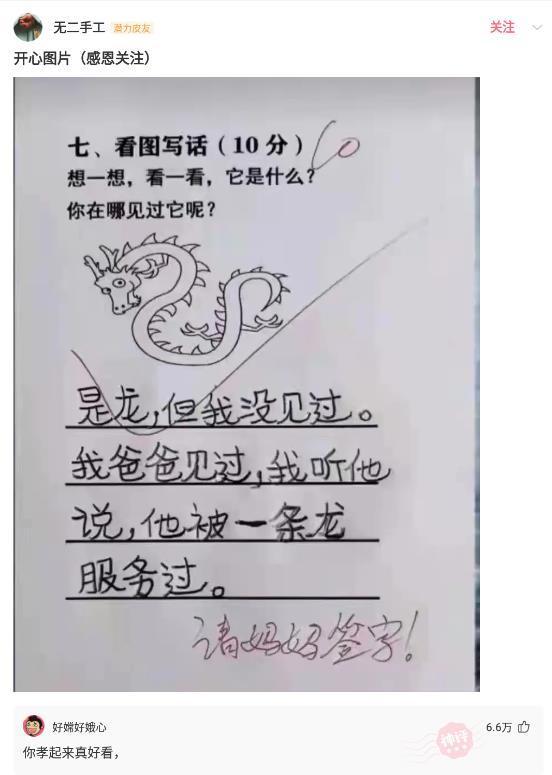 无二手工 潜力皮友
关注
开心图片（感恩关注）
七、看图写话（10分）
10
想一想，看一看，它是什么？
你在哪见过它呢？
是龙，但我没见过。
我爸爸见过，我听他
说，他被一条龙
服务过。
请妈妈签字！
好嫦好娥心
6.6万
神评
你孝起来真好看，